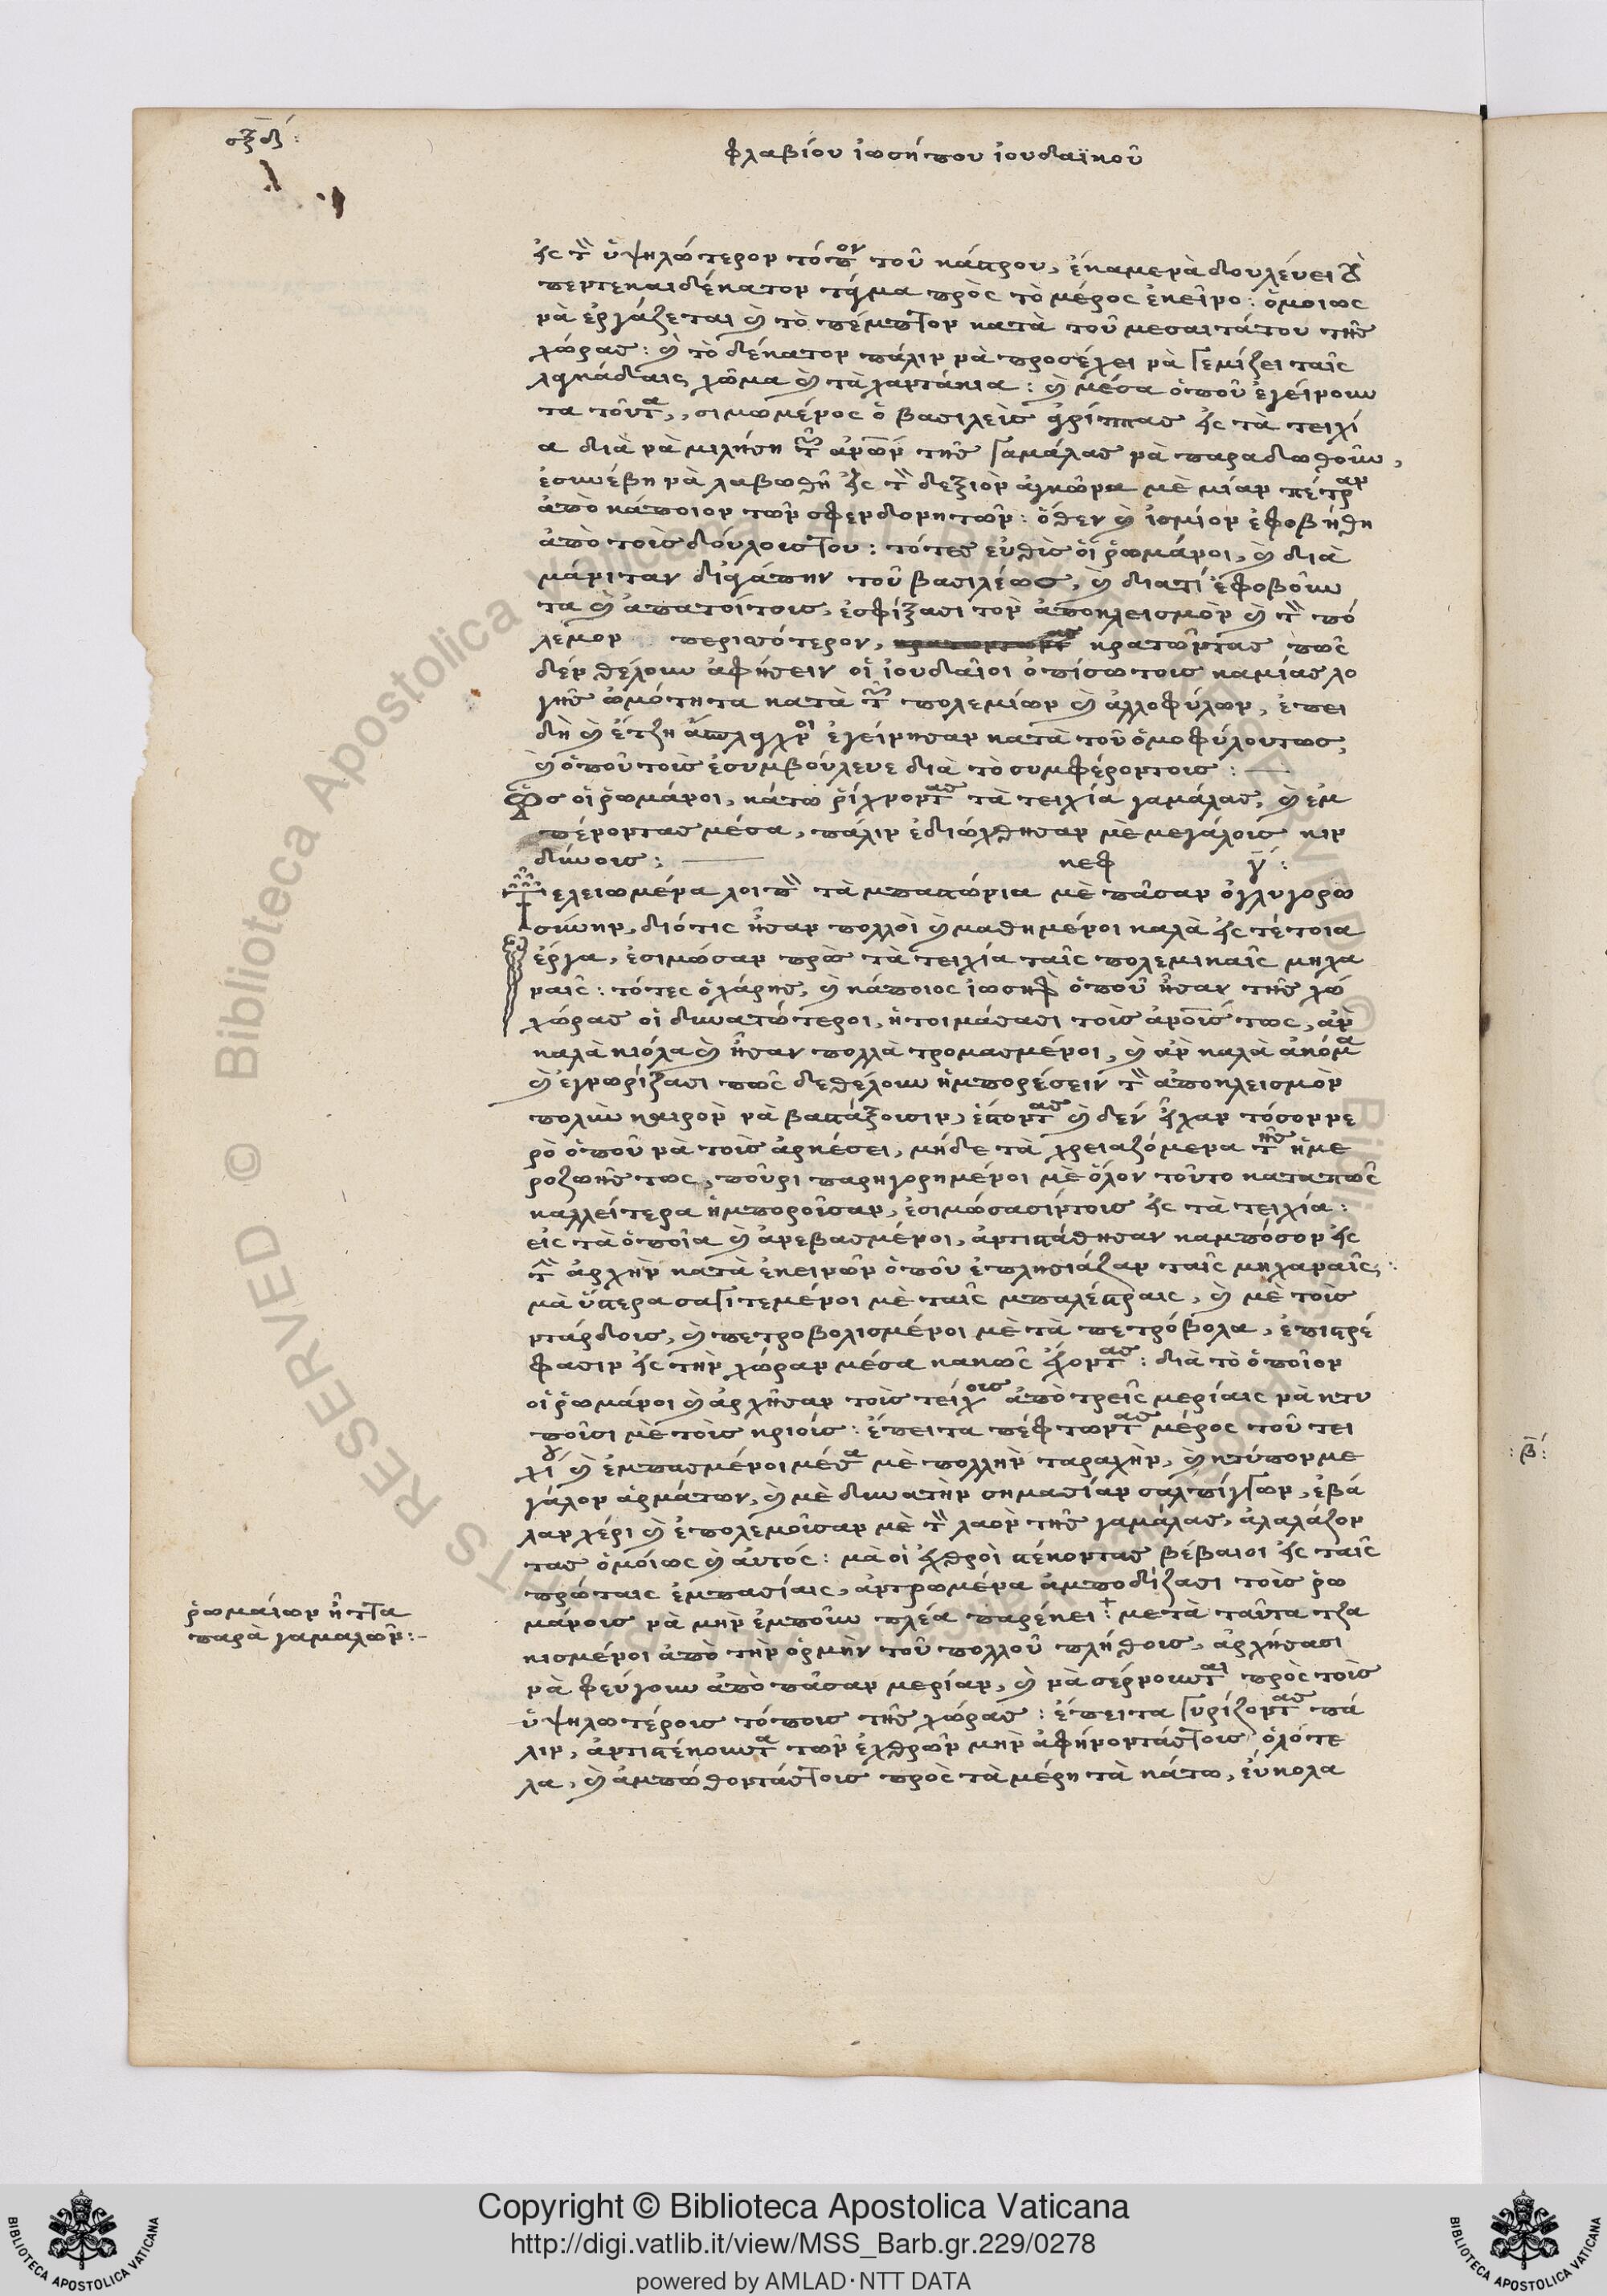 σξδʹ:
φλαβίου ἰωσήπου ἰουδαϊκοῦ
εἰς τὸν ὑψηλώτερον τόπον τοῦ κάστρου, ἔκαμε νὰ δουλεύει τὸ
πεντεκαιδέκατον τάγμα πρὸς τὸ μέρος ἐκεῖνο: ὅμοιως
νὰ ἐργάζεται καὶ τὸ πέμπτον κατὰ τοῦ μεσαιτάτου τῆς
χώρας: καὶ τὸ δέκατον πάλιν νὰ προσέχει νὰ γεμίζει ταῖς
λακκάδαις χῶμα καὶ τὰ χαντάκια: καὶ μέσα ὁποῦ ἐγείρουν
τα τοῦτα, σιμωμένος ὁ βασιλεὺς ἀγρίππας εἰς τὰ τειχί
α διὰ νὰ μιλήση τῶν ἀνων τῆς γαμάλας νὰ παραδωθοῦν,
ἐσυνέβη νὰ λαβωθῆ εἰς τὸν δεξιὸν ἀγκῶνα μὲ μίαν πέτραν
ἀπὸ κάποιον τῶν σφενδονητῶν: ὅθεν καὶ ἰσμίον ἐφοβήθη
ἀπὸ τοὺς δούλους του: τότες εὐθὺς οἱ ῥωμάνοι, καὶ διὰ
μάνιταν δι' ἀγάπην τοῦ βασιλέως, καὶ διατί ἐφοβοῦν
τα καὶ ἀπατοί τους, ἐσφίξασι τὸν ἀποκλεισμὸν καὶ τὸν πό
λεμον περισότερον, κρατῶντας πῶς
δέν θέλουν ἀφήσειν οἱ ἰουδαῖοι ὀπίσω τους καμίας λο
γῆς ὠμότητα κατὰ τῶν πολεμίων καὶ ἀλλοφύλων, ἐπει
δὴ καὶ ἔτζη ἐγείρησαν κατὰ τοῦ ὁμοφύλου τως,
καὶ ὁποῦ τοὺς ἐσυμβούλευε διὰ τὸ συμφέρον τους:
Πῶς οἱ ῥωμάνοι, κάτω ῥίχνοντας τὰ τειχία γαμάλας, καὶ ἐμ
πένοντας μέσα, πάλιν ἐδιώχθησαν μὲ μεγάλους κιν
δύνους: κεφ γʹ:
Τελειωμένα λοιπὸν τὰ μπαστώνια μὲ πᾶσαν ὀγλυγορω
σύνην, διότις ἦσαν πολλοὶ καὶ μαθημένοι καλὰ εἰς τέτοια
ἔργα, ἐσιμώσαν πρὸς τὰ τειχία ταῖς πολεμικαῖς μηχα
ναῖς: τότες ὁ χάρης, καὶ κάποιος ἰωσὴφ ὁποῦ ἦσαν τῆς χώ
χώρας οἱ δυνατώτεροι, ἡτοιμάσασι τοὺς ἀνους τως, ἀν
καλὰ κιόλα καὶ ἦσαν πολλὰ τρομασμένοι, καὶ ἀν καλὰ ἀκόμα
καὶ ἐγνωρίζασι πῶς δε θέλουν ἠμπορέσειν τὸν ἀποκλεισμὸν
πολὺν καιρὸν νὰ βαστάξουσιν, ἔστοντας καὶ δέν εἶχαν τόσον νε
ρὸ ὁποῦ νὰ τοὺς ἀρκέσει, μήδε τὰ χρειαζόμενα τῆς ἡμε
ροζωῆς τως, πούρι παρηγορημένοι μὲ ὅλον τοῦτο κατα πῶς
καλλείτερα ἠμποροῦσαν, ἐσιμώσασίν τους εἰς τὰ τειχία:
εἰς τὰ ὁποῖα καὶ ἀνεβασμένοι, ἀντιστάθησαν καμπόσον εἰς
τὴν ἀρχὴν κατὰ ἐκεινῶν ὁποῦ ἐπλησιάζαν ταῖς μηχαναῖς,
μὰ ὕστερα σαγιτεμένοι μὲ ταῖς μπαλέστραις, καὶ μὲ τοὺς
ντάρδους, καὶ πετροβολισμένοι μὲ τὰ πετρόβολα, ἐπιστρέ
φασιν εἰς τὴν χώραν μέσα κακῶς ἔχοντας: διὰ τὸ ὁποῖον
οἱ ῥωμάνοι καὶ ἀρχήσαν τοὺς τείχους ἀπὸ τρεῖς μερίαις νὰ κτυ
ποῦσι μὲ τοὺς κριούς: ἔπειτα πέφτωντας μέρος τοῦ τει
χίου καὶ ἐμπασμένοι μέσα μὲ πολλὴν ταραχὴν, καὶ κτύπον με
γάλον ἁρμάτων, καὶ μὲ δυνατὴν σημασίαν σαλπίγγων, ἐβά
λαν χέρι καὶ ἐπολεμοῦσαν μὲ τὸν λαὸν τῆς γαμάλας, ἀλαλάζον
τας ὁμοίως καὶ αὐτός: μὰ οἱ ἐχθροὶ στέκοντας βέβαιοι εἰς ταῖς
πρώταις ἐμπασίαις, ἀντρωμένα ἀμποδίζασι τοὺς ῥω
μάνους νὰ μὴν ἐμποῦν πλέα παρέκει: μετὰ ταῦτα τζα
κισμένοι ἀπὸ τὴν ὁρμὴν τοῦ πολλοῦ πλήθους, ἀρχήσασι
νὰ φεύγουν ἀπὸ πᾶσαν μερίαν, καὶ νὰ σέρνουνται πρὸς τοὺς
ὑψηλωτέρους τόπους τῆς χώρας: ἔπειτα γυρίζοντας πά
λιν, ἀντιστέκουντα τῶν ἐχθρῶν μὴν ἀφήνοντάς τους ὁλότε
λα, καὶ ἀμπώθοντάς τους πρὸς τὰ μέρη τὰ κάτω, εὔκολα
ῥωμαίων ἧττα
παρὰ γαμαλῶν:-
:βʹ:
Copyright © Biblioteca Apostolica Vaticana
http://digi.vatlib.it/view/MSS_Barb.gr.229/0278
powered by AMLAD·NTT DATA